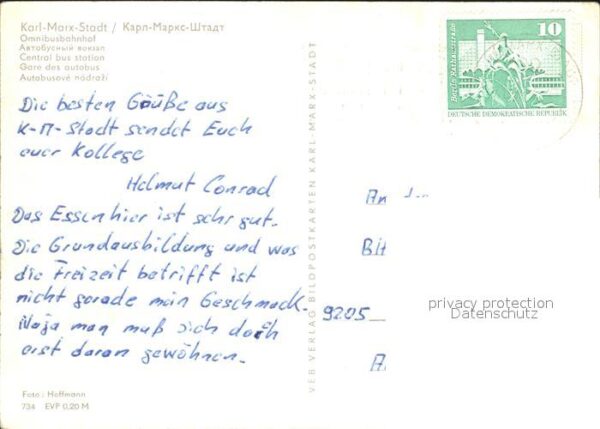 Karl-Marx-Stadt / Карл-Маркс-Штадт
Omnibusbahnhof
Автобусный вокзал
Central bus station
Gare des autobus
Autobusové nádraží
Die besten Grüße aus
K-M-Stadt sendet Euch
euer Kollege
Helmut Conrad
Das Essen hier ist sehr gut.
Die Grundausbildung und was
die Freizeit betrifft ist
nicht gerade mein Geschmack.
Naja man muß sich doch
erst daran gewöhnen.
Foto: Hoffmann
734 EVP 0,20 M
VEB VERLAG BILDPOSTKARTEN KARL-MARX-STADT
10
Berlin, Rathausstraße
DEUTSCHE DEMOKRATISCHE REPUBLIK
An
9205
privacy protection
Datenschutz